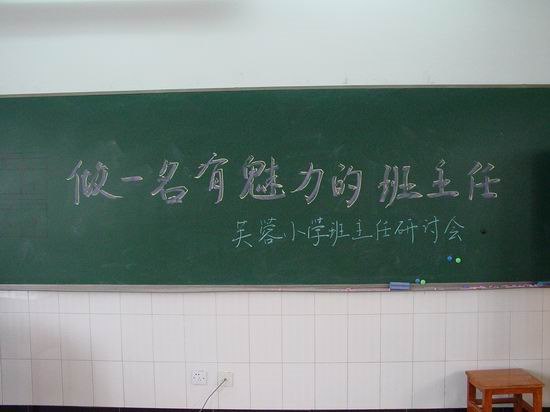 做一名有魅力的班主任
芙蓉小学班主任研讨会